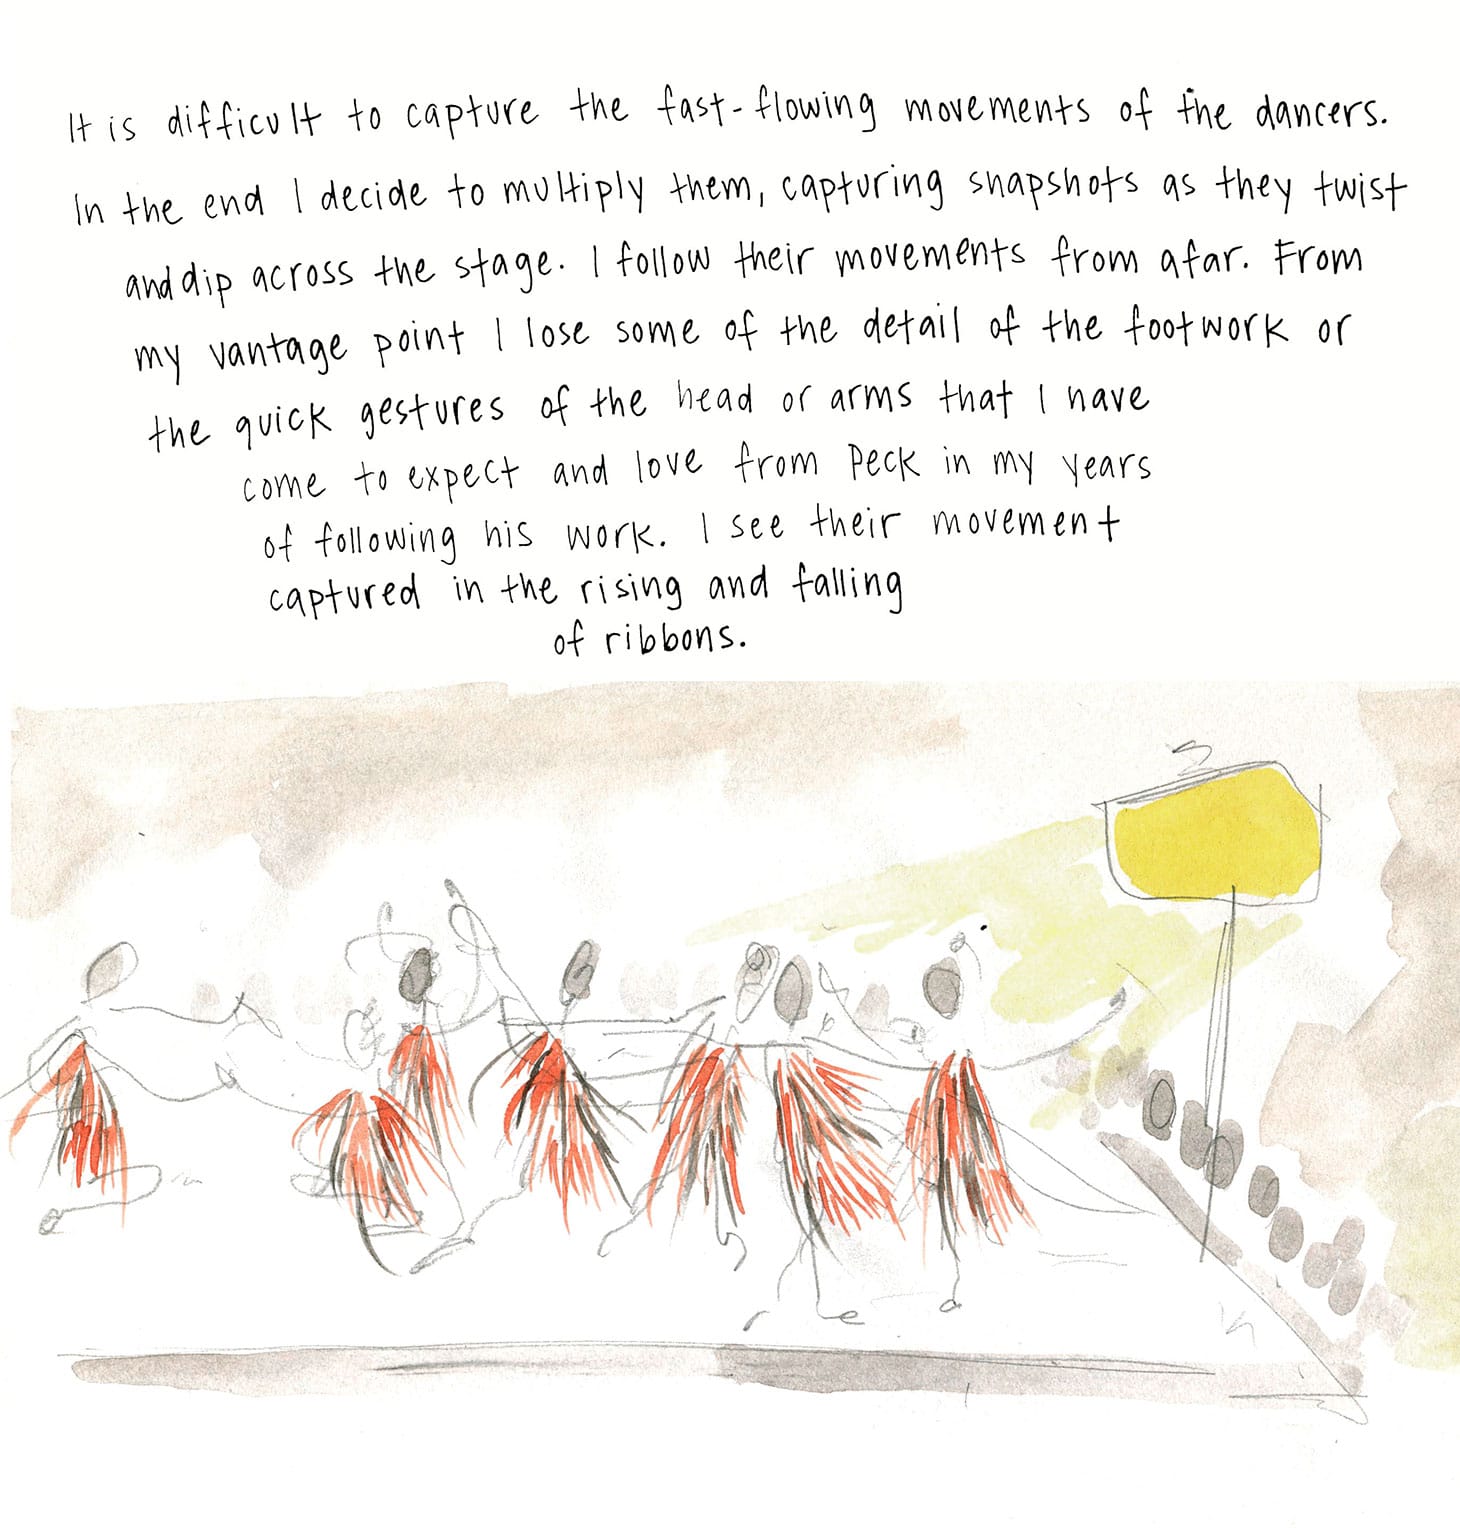 It is difficult to capture the fast-flowing movements of the dancers.
In the end I decide to multiply them, capturing snapshots as they twist
and dip across the stage. I follow their movements from afar. From
my vantage point I lose some of the detail of the footwork or
the quick gestures of the head or arms that I have
come to expect and love from Peck in my years
of following his work. I see their movement
captured in the rising and falling
of ribbons.